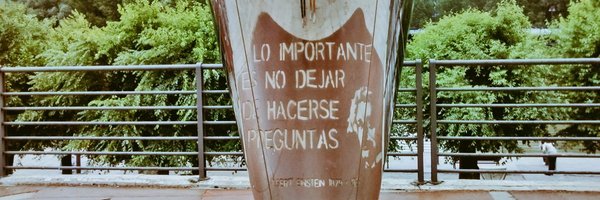 LO IMPORTANTE
ES NO DEJAR
DE HACERSE
PREGUNTAS
EINSTEIN